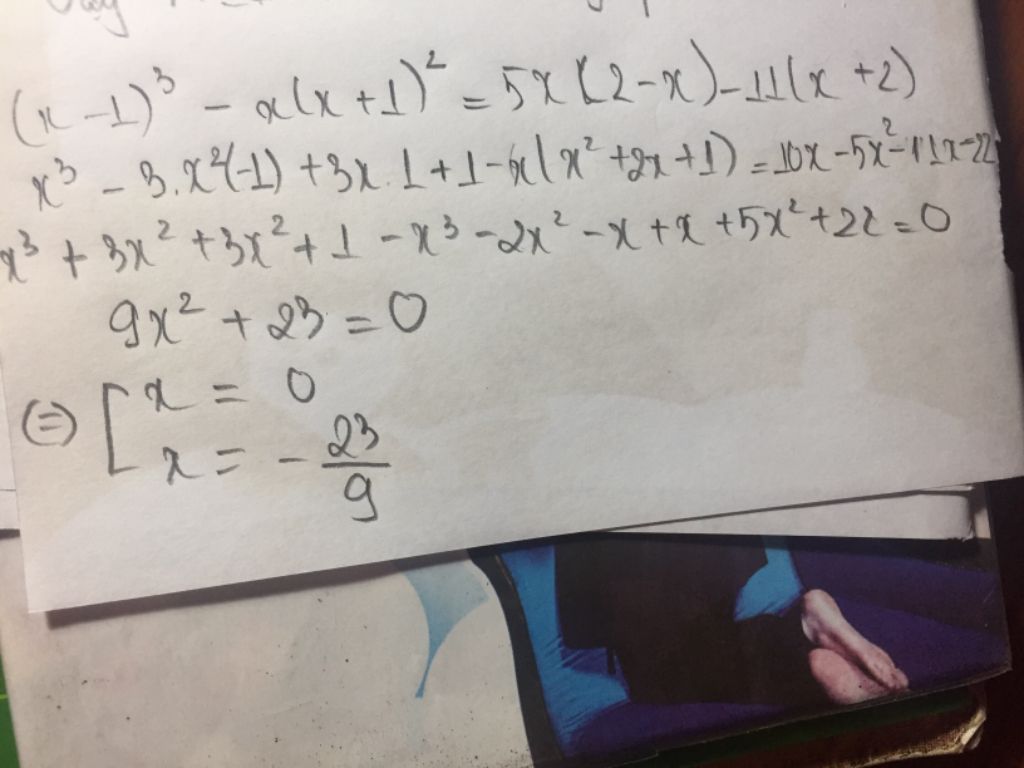 (x - 1)³ - x(x + 1)² = 5x(2 - x) - 11(x + 2)
x³ - 3.x²(-1) + 3x.1 + 1 - x(x² + 2x + 1) = 10x - 5x² - 11x - 22
x³ + 3x² + 3x² + 1 - x³ - 2x² - x + x + 5x² + 22 = 0
9x² + 23 = 0
(=) [ x = 0
x = - 23/9